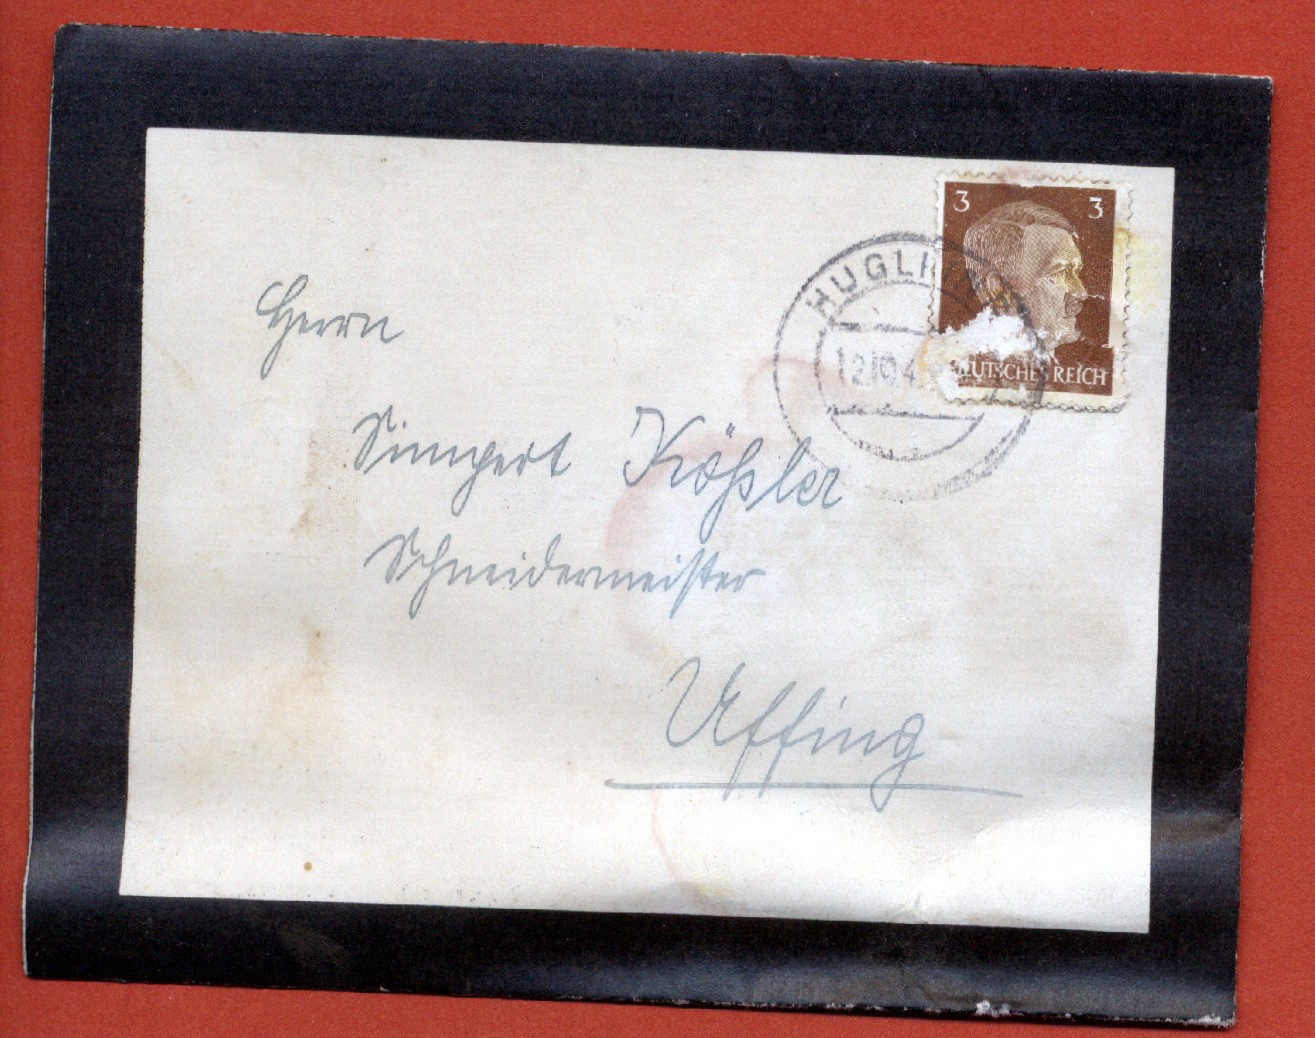 3 3
DEUTSCHES REICH
HUGLFING
12.10.4
Herrn
Simpert Kößler
Schneidermeister
Uffing